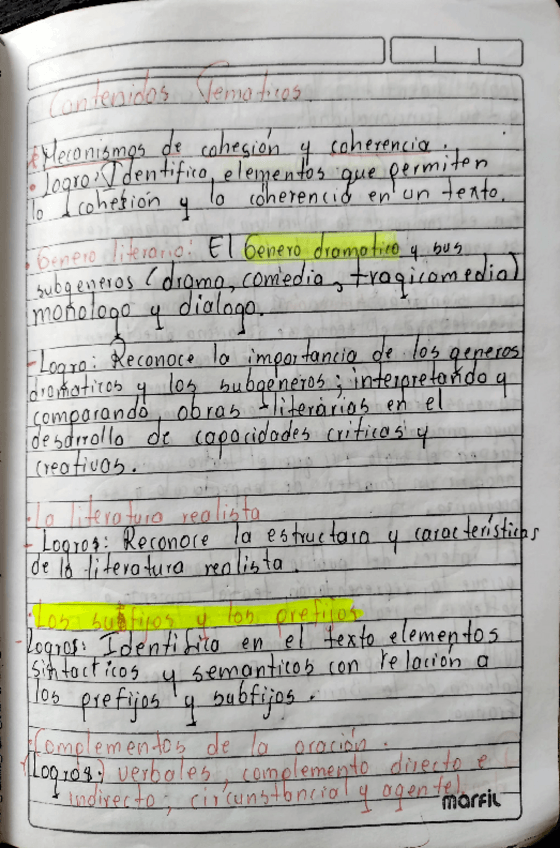 Contenidos Tematicos.
* Mecanismos de cohesión y coherencia.
• Logro: Identifico elementos que permiten
la cohesión y la coherencia en un texto.
• Genero literario: El Genero dramatico y sus
subgeneros (drama, comedia, tragicomedia)
monologo y dialogo.
- Logro: Reconoce la importancia de los generos
dramaticos y los subgeneros; interpretando y
comparando obras literarias en el
desarrollo de capacidades criticas y
creativas.
• La literatura realista
- Logros: Reconoce la estructura y características
de la literatura realista.
• Los subfijos y los prefijos
- Logros: Identifico en el texto elementos
sintacticos y semanticos con relación a
los prefijos y subfijos.
• Complementos de la oración.
Logros: verbales, complemento directo e
indirecto; circunstancial y agente).
marfil